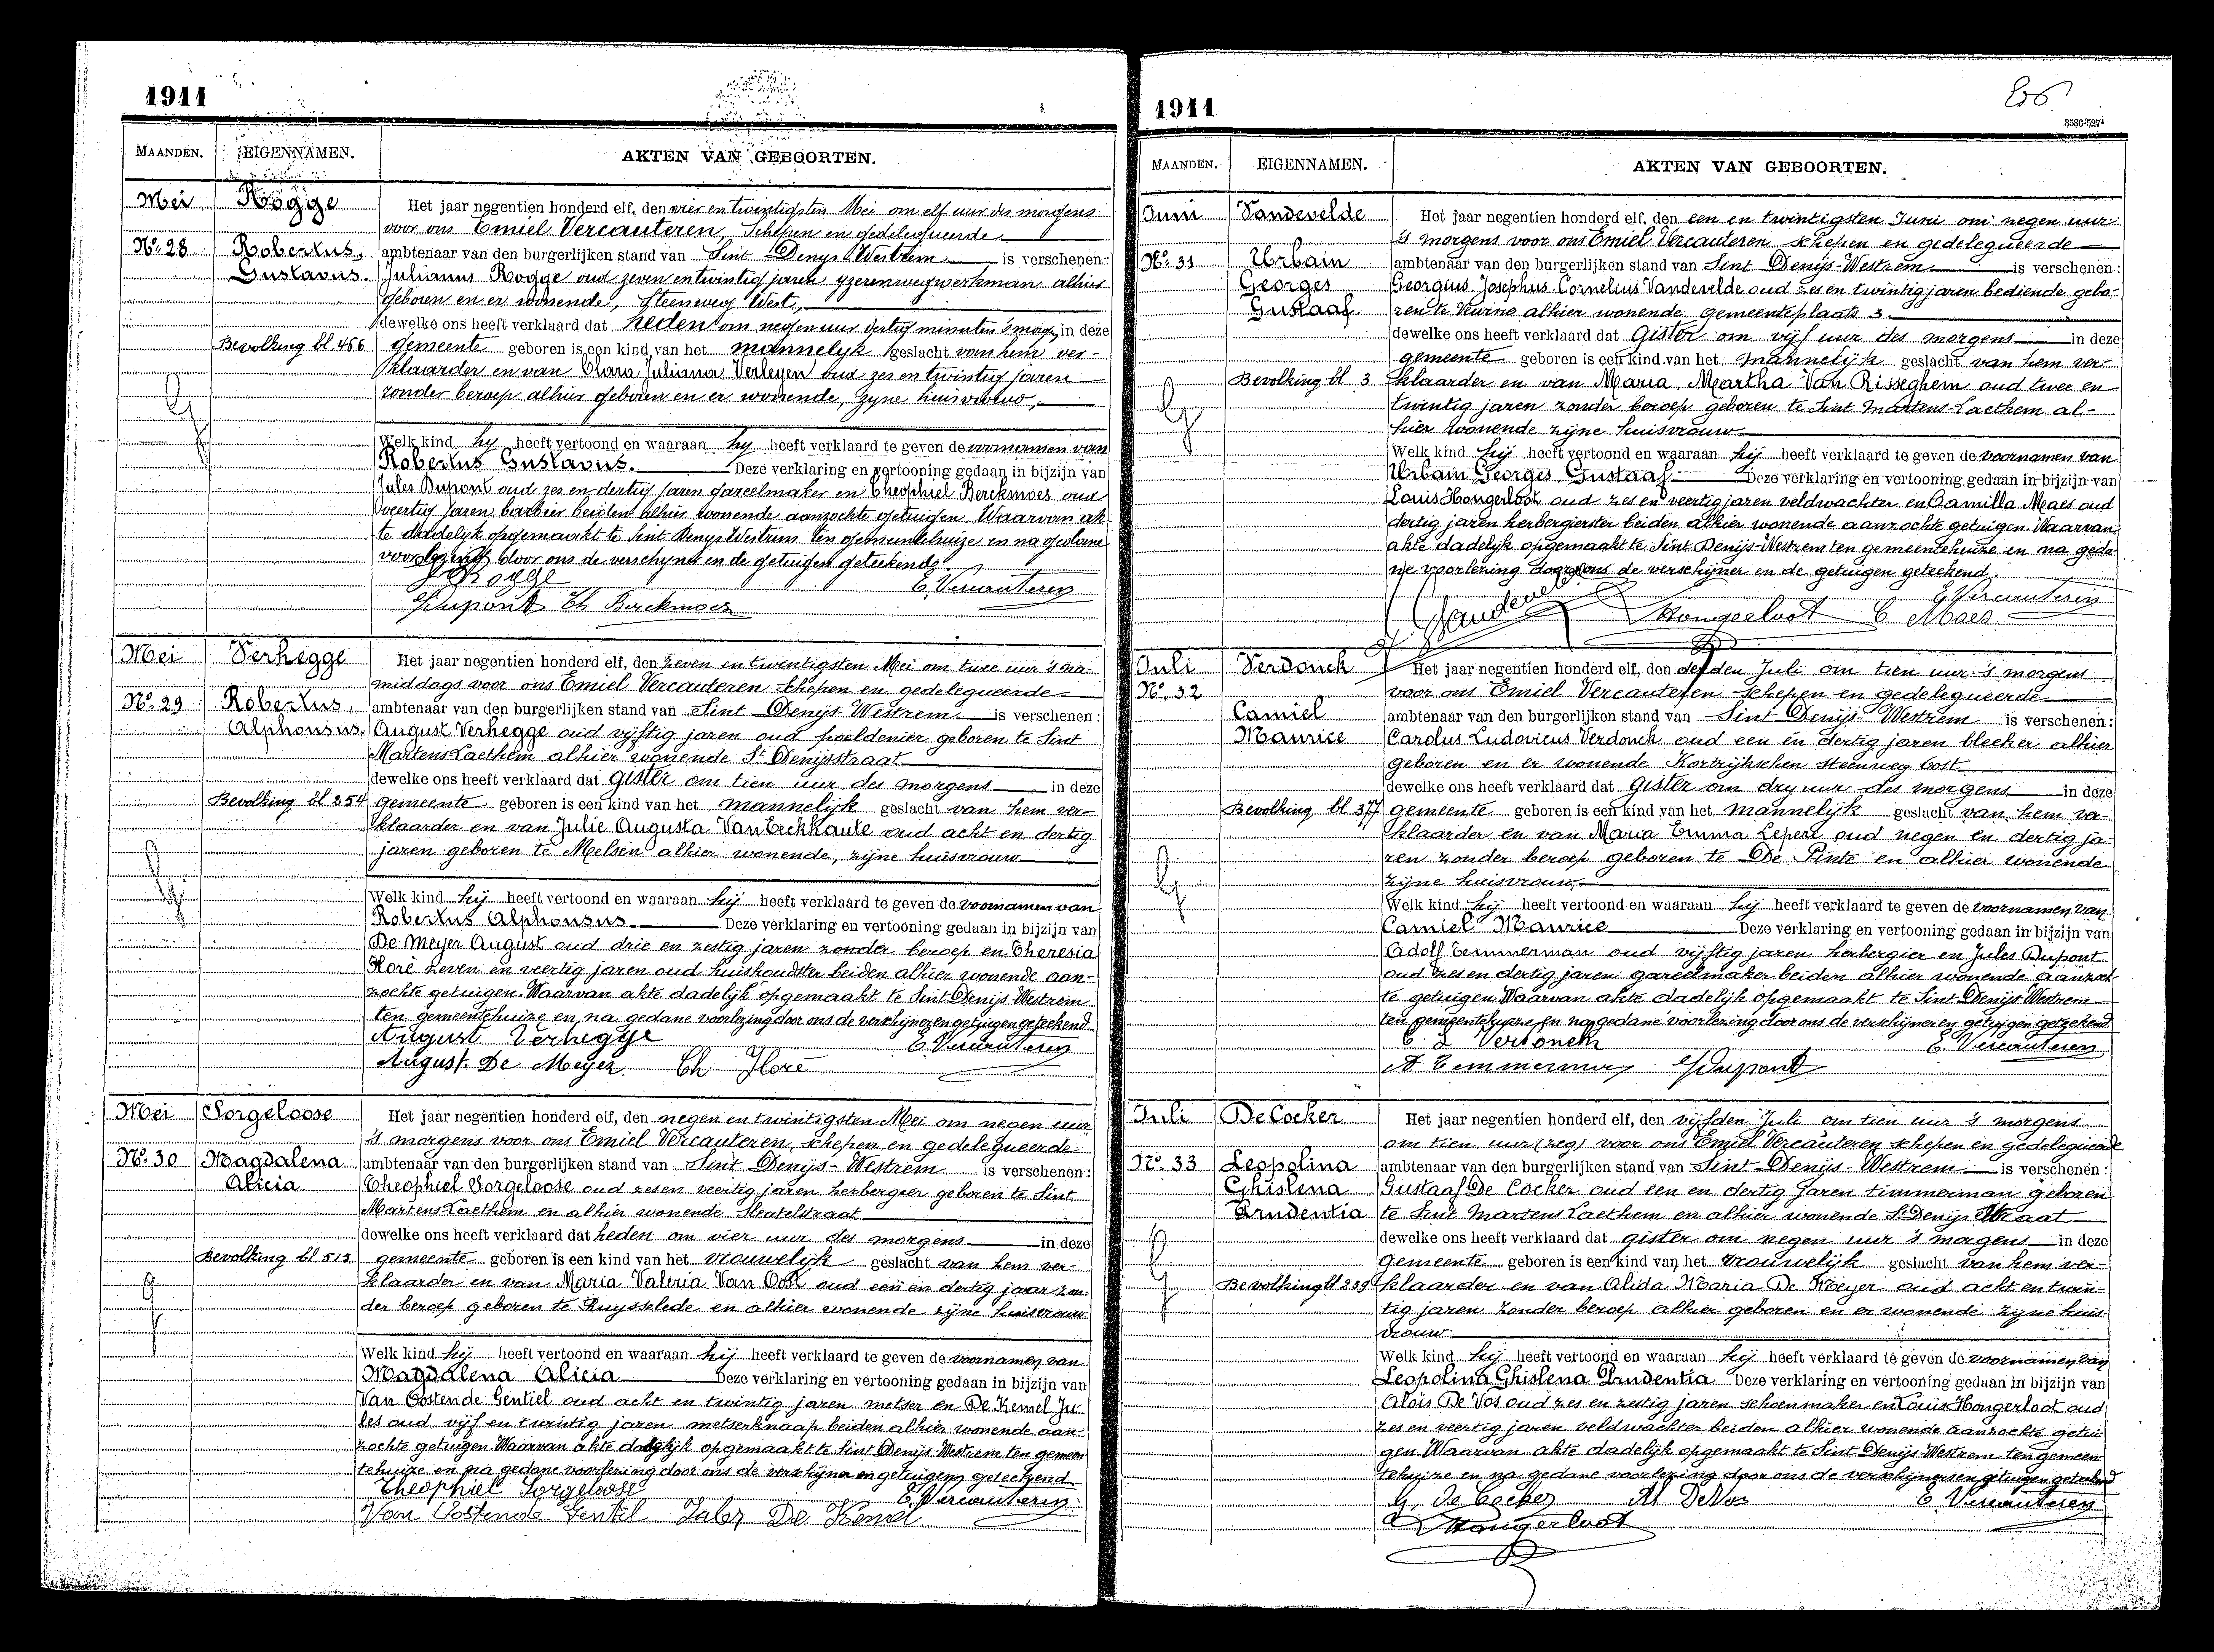 1911
MAANDEN. EIGENNAMEN. AKTEN VAN GEBOORTEN.
Mei Rogge Het jaar negentien honderd elf, den vier en twintigsten Mei om elf uur des morgens
voor ons Emiel Vercauteren, Schepen en gedelegueerde
No. 28 Robertus, ambtenaar van den burgerlijken stand van Sint Denys Westrem is verschenen:
Gustavus. Julianus Rogge oud zeven en twintig jaren yzerenwegwerkman alhier
geboren en er wonende, Steenweg West,
dewelke ons heeft verklaard dat heden om negen uur dertig minuten 's morg, in deze
Bevolking bl. 466 gemeente geboren is een kind van het mannelyk geslacht van hem ver-
klaarder en van Clara Juliana Verleyen oud zes en twintig jaren
zonder beroep alhier geboren en er wonende, zyne huisvrouw,
Welk kind hy heeft vertoond en waaraan hy heeft verklaard te geven de voornamen van
Robertus Gustavus. Deze verklaring en vertooning gedaan in bijzijn van
Jules Dupont oud zes en dertig jaren gareelmaker en Theophiel Berckmoes oud
veertig jaren barbier beiden alhier wonende aanzochte getuigen Waarvan ak-
te dadelyk opgemaakt te Sint Denys Westrem ten gemeentehuize en na gedane
voorlezing door ons de verschyner en de getuigen geteekend.
Rogge E. Vercauteren
J Dupont Th Berckmoes
Mei Verhegge Het jaar negentien honderd elf, den zeven en twintigsten Mei om twee uur 's na-
middags voor ons Emiel Vercauteren schepen en gedelegueerde
No. 29 Robertus, ambtenaar van den burgerlijken stand van Sint Denijs Westrem is verschenen:
Alphonsus. August Verhegge oud vijftig jaren oud poeldenier geboren te Sint
Martens Laethem alhier wonende St Denijsstraat
dewelke ons heeft verklaard dat gister om tien uur des morgens in deze
Bevolking bl 254 gemeente geboren is een kind van het mannelijk geslacht van hem ver-
klaarder en van Julie Augusta Van Eeckhaute oud acht en dertig
jaren geboren te Melsen alhier wonende, zijne huisvrouw
Welk kind hij heeft vertoond en waaraan hij heeft verklaard te geven de voornamen van
Robertus Alphonsus. Deze verklaring en vertooning gedaan in bijzijn van
De Meyer August oud drie en zestig jaren zonder beroep en Theresia
Floré zeven en veertig jaren oud huishoudster beiden alhier wonende aan-
zochte getuigen. Waarvan akte dadelijk opgemaakt te Sint Denijs Westrem
ten gemeentehuize en na gedane voorlezing door ons de verschijner en getuigen geteekend
August Verhegge E. Vercauteren
August. De Meyer. Th Floré
Mei Sorgeloose Het jaar negentien honderd elf, den negen en twintigsten Mei om negen uur
's morgens voor ons Emiel Vercauteren, schepen en gedelegueerde
No. 30 Magdalena ambtenaar van den burgerlijken stand van Sint Denijs-Westrem is verschenen:
Alicia Theophiel Sorgeloose oud zes en veertig jaren herbergier geboren te Sint
Martens Laethem en alhier wonende Sleutelstraat
dewelke ons heeft verklaard dat heden om vier uur des morgens in deze
Bevolking bl 515 gemeente geboren is een kind van het vrouwelijk geslacht van hem ver-
klaarder en van Maria Valeria Van Oost oud een en dertig jaar zon-
der beroep geboren te Ruysselede en alhier wonende zijne huisvrouw
Welk kind hij heeft vertoond en waaraan hij heeft verklaard te geven de voornamen van
Magdalena Alicia Deze verklaring en vertooning gedaan in bijzijn van
Van Oostende Gentiel oud acht en twintig jaren metser en De Kemel Ju-
les oud vijf en twintig jaren metserknaap beiden alhier wonende aan-
zochte getuigen Waarvan akte dadelijk opgemaakt te Sint Denijs Westrem ten gemeen-
tehuize en na gedane voorlezing door ons de verschijner en getuigen geteekend
Theophiel Sorgeloose E. Vercauteren
Van Oostende Gentil Jules De Kemel
1911
3586-527
MAANDEN. EIGENNAMEN. AKTEN VAN GEBOORTEN.
Juni Vandevelde Het jaar negentien honderd elf, den een en twintigsten Juni om negen uur
's morgens voor ons Emiel Vercauteren schepen en gedelegueerde
No. 31 Urbain ambtenaar van den burgerlijken stand van Sint Denijs-Westrem is verschenen:
Georges Georgius Josephus Cornelius Vandevelde oud zes en twintig jaren bediende gebo-
Gustaaf. ren te Veurne alhier wonende gemeenteplaats 3
dewelke ons heeft verklaard dat Gister om vijf uur des morgens in deze
gemeente geboren is een kind van het mannelijk geslacht van hem ver-
Bevolking bl 3 klaarder en van Maria Martha Van Risseghem oud twee en
twintig jaren zonder beroep geboren te Sint Martens-Laethem al-
hier wonende zijne huisvrouw
Welk kind hij heeft vertoond en waaraan hij heeft verklaard te geven de voornamen van
Urbain Georges Gustaaf Deze verklaring en vertooning gedaan in bijzijn van
Louis Hongerloot oud zes en veertig jaren veldwachter en Camilla Maes oud
dertig jaren herbergierster beiden alhier wonende aanzochte getuigen Waarvan
akte dadelijk opgemaakt te Sint Denijs-Westrem ten gemeentehuize en na geda-
ne voorlezing door ons de verschijner en de getuigen geteekend.
E Vercauteren
Vandevelde Hongerloot C Maes
Juli Verdonck Het jaar negentien honderd elf, den derden Juli om tien uur 's morgens
No. 32 voor ons Emiel Vercauteren schepen en gedelegueerde
Camiel ambtenaar van den burgerlijken stand van Sint Denijs-Westrem is verschenen:
Maurice Carolus-Ludovicus Verdonck oud een en dertig jaren bleeker alhier
geboren en er wonende Kortrijkschen steenweg Oost
dewelke ons heeft verklaard dat Gister om dry uur des morgens in deze
Bevolking bl 377 gemeente geboren is een kind van het mannelijk geslacht van hem ver-
klaarder en van Maria Emma Lepere oud negen en dertig ja-
ren zonder beroep geboren te De Pinte en alhier wonende
zijne huisvrouw
Welk kind hij heeft vertoond en waaraan hij heeft verklaard te geven de voornamen van
Camiel Maurice Deze verklaring en vertooning gedaan in bijzijn van
Adolf Temmerman oud vijftig jaren herbergier en Jules Dupont
oud zes en dertig jaren gareelmaker beiden alhier wonende aanzoch-
te getuigen Waarvan akte dadelijk opgemaakt te Sint Denijs Westrem
ten gemeentehuize en na gedane voorlezing door ons de verschijner en getuigen geteekend
C. L Verdonck E. Vercauteren
A Temmerman J Dupont
Juli De Cocker Het jaar negentien honderd elf, den vijfden Juli om tien uur 's morgens
om tien uur (zeg) voor ons Emiel Vercauteren schepen en gedelegueerde
No. 33 Leopolina ambtenaar van den burgerlijken stand van Sint-Denijs-Westrem is verschenen:
Ghislena Gustaaf De Cocker oud een en dertig jaren timmerman geboren
Prudentia te Sint Martens Laethem en alhier wonende St Denijsstraat
dewelke ons heeft verklaard dat gister om negen uur 's morgens in deze
gemeente geboren is een kind van het vrouwelijk geslacht van hem ver-
Bevolking bl 239 klaarder en van Alida Maria De Meyer oud acht en twin-
tig jaren zonder beroep alhier geboren en er wonende zijne huis-
vrouw
Welk kind hij heeft vertoond en waaraan hij heeft verklaard te geven de voornamen van
Leopolina Ghislena Prudentia Deze verklaring en vertooning gedaan in bijzijn van
Aloïs De Vos oud zes en zestig jaren schoenmaker en Louis Hongerloot oud
zes en veertig jaren veldwachter beiden alhier wonende aanzochte getui-
gen Waarvan akte dadelijk opgemaakt te Sint-Denijs Westrem ten gemeen-
tehuize en na gedane voorlezing door ons de verschijner en getuigen geteekend
G. De Cocker Al DeVos E. Vercauteren
Hongerloot